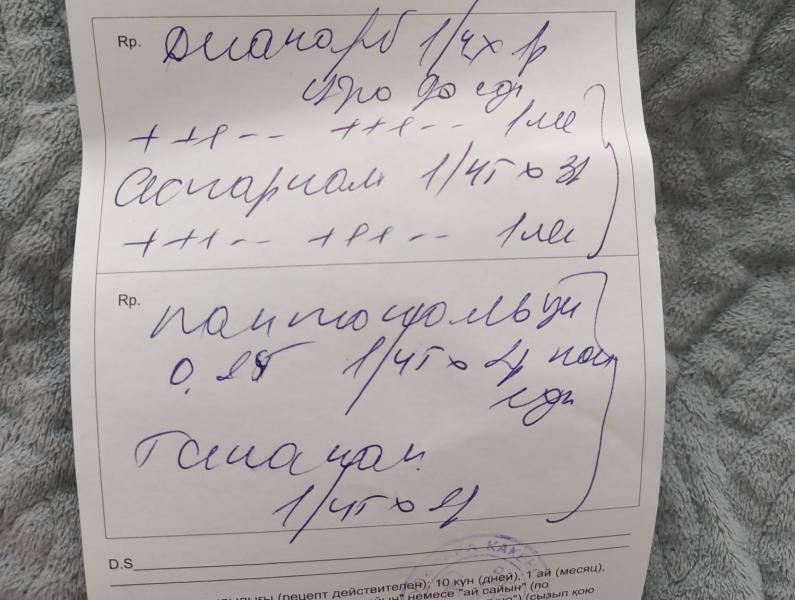 Rp. Диакарб 1/4 х 1р
утро до еды
+ + + - - + + + - - 1 мес
Аспаркам 1/4т х 3р
+ + + - - + + + - - 1 мес
Rp. пантокальцин
0,25 1/4т х 2р после
еды
Танакан
1/4т х 2р
D.S
(рецепт действителен); 10 күн (дней), 1 ай (месяц),
немесе "ай сайын" (по
(сызып қою